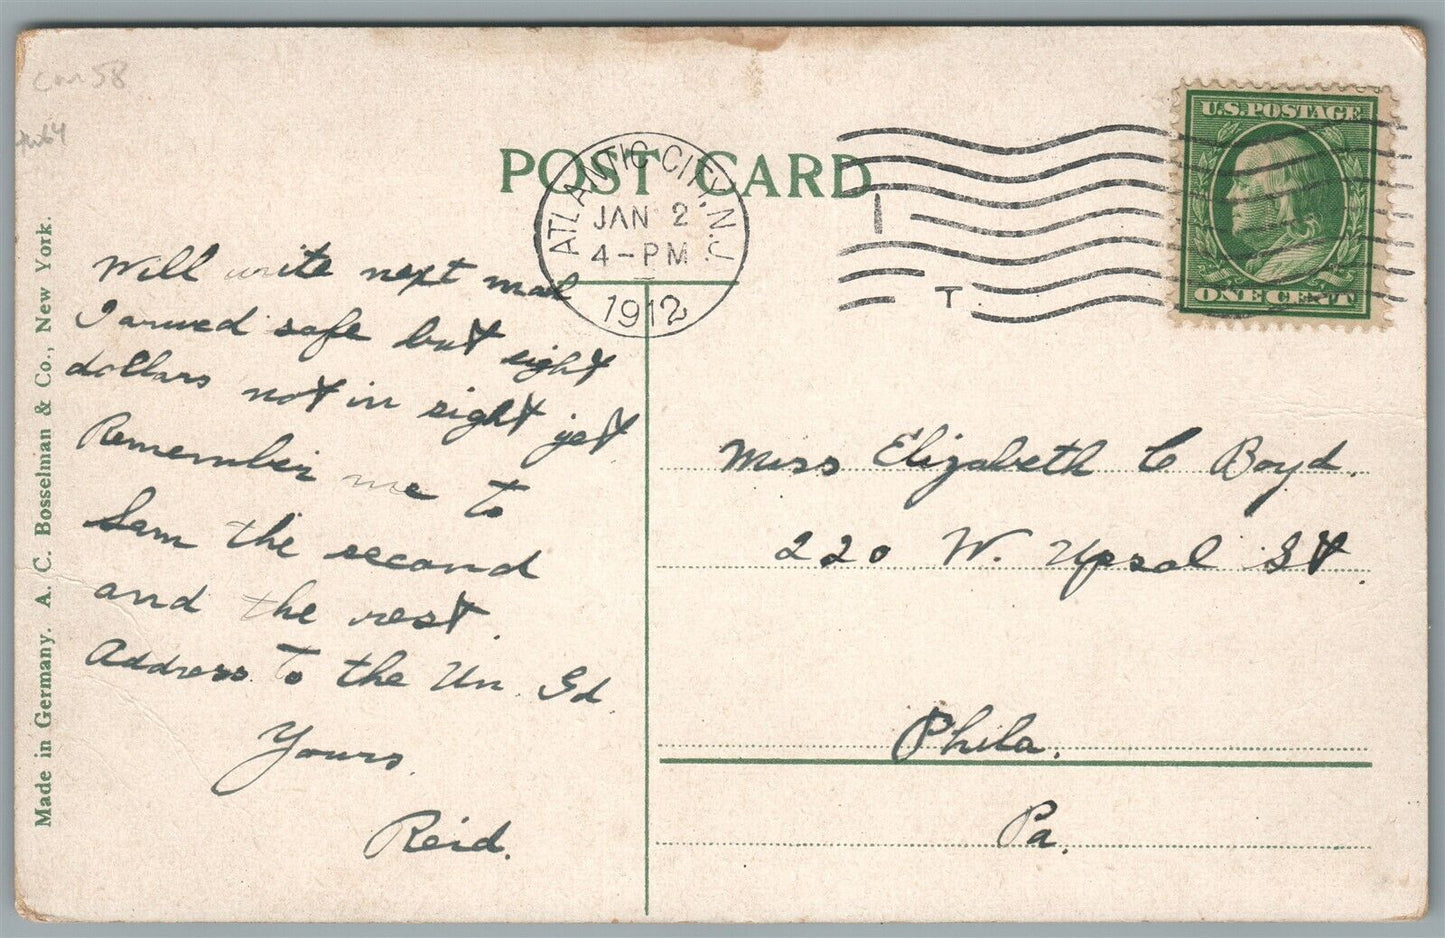 POST CARD
ATLANTIC CITY, N.J.
JAN 2
4-PM
1912
T
U.S. POSTAGE
ONE CENT
Will write next mail
I arrived safe but eight
dollars not in sight yet
Remember me to
Sam the second
and the rest.
Address to the Un. Gd
Yours.
Reid.
Miss Elizabeth C Boyd.
220 W. Upsal St.
Phila.
Pa.
Made in Germany. A. C. Bosselman & Co., New York.